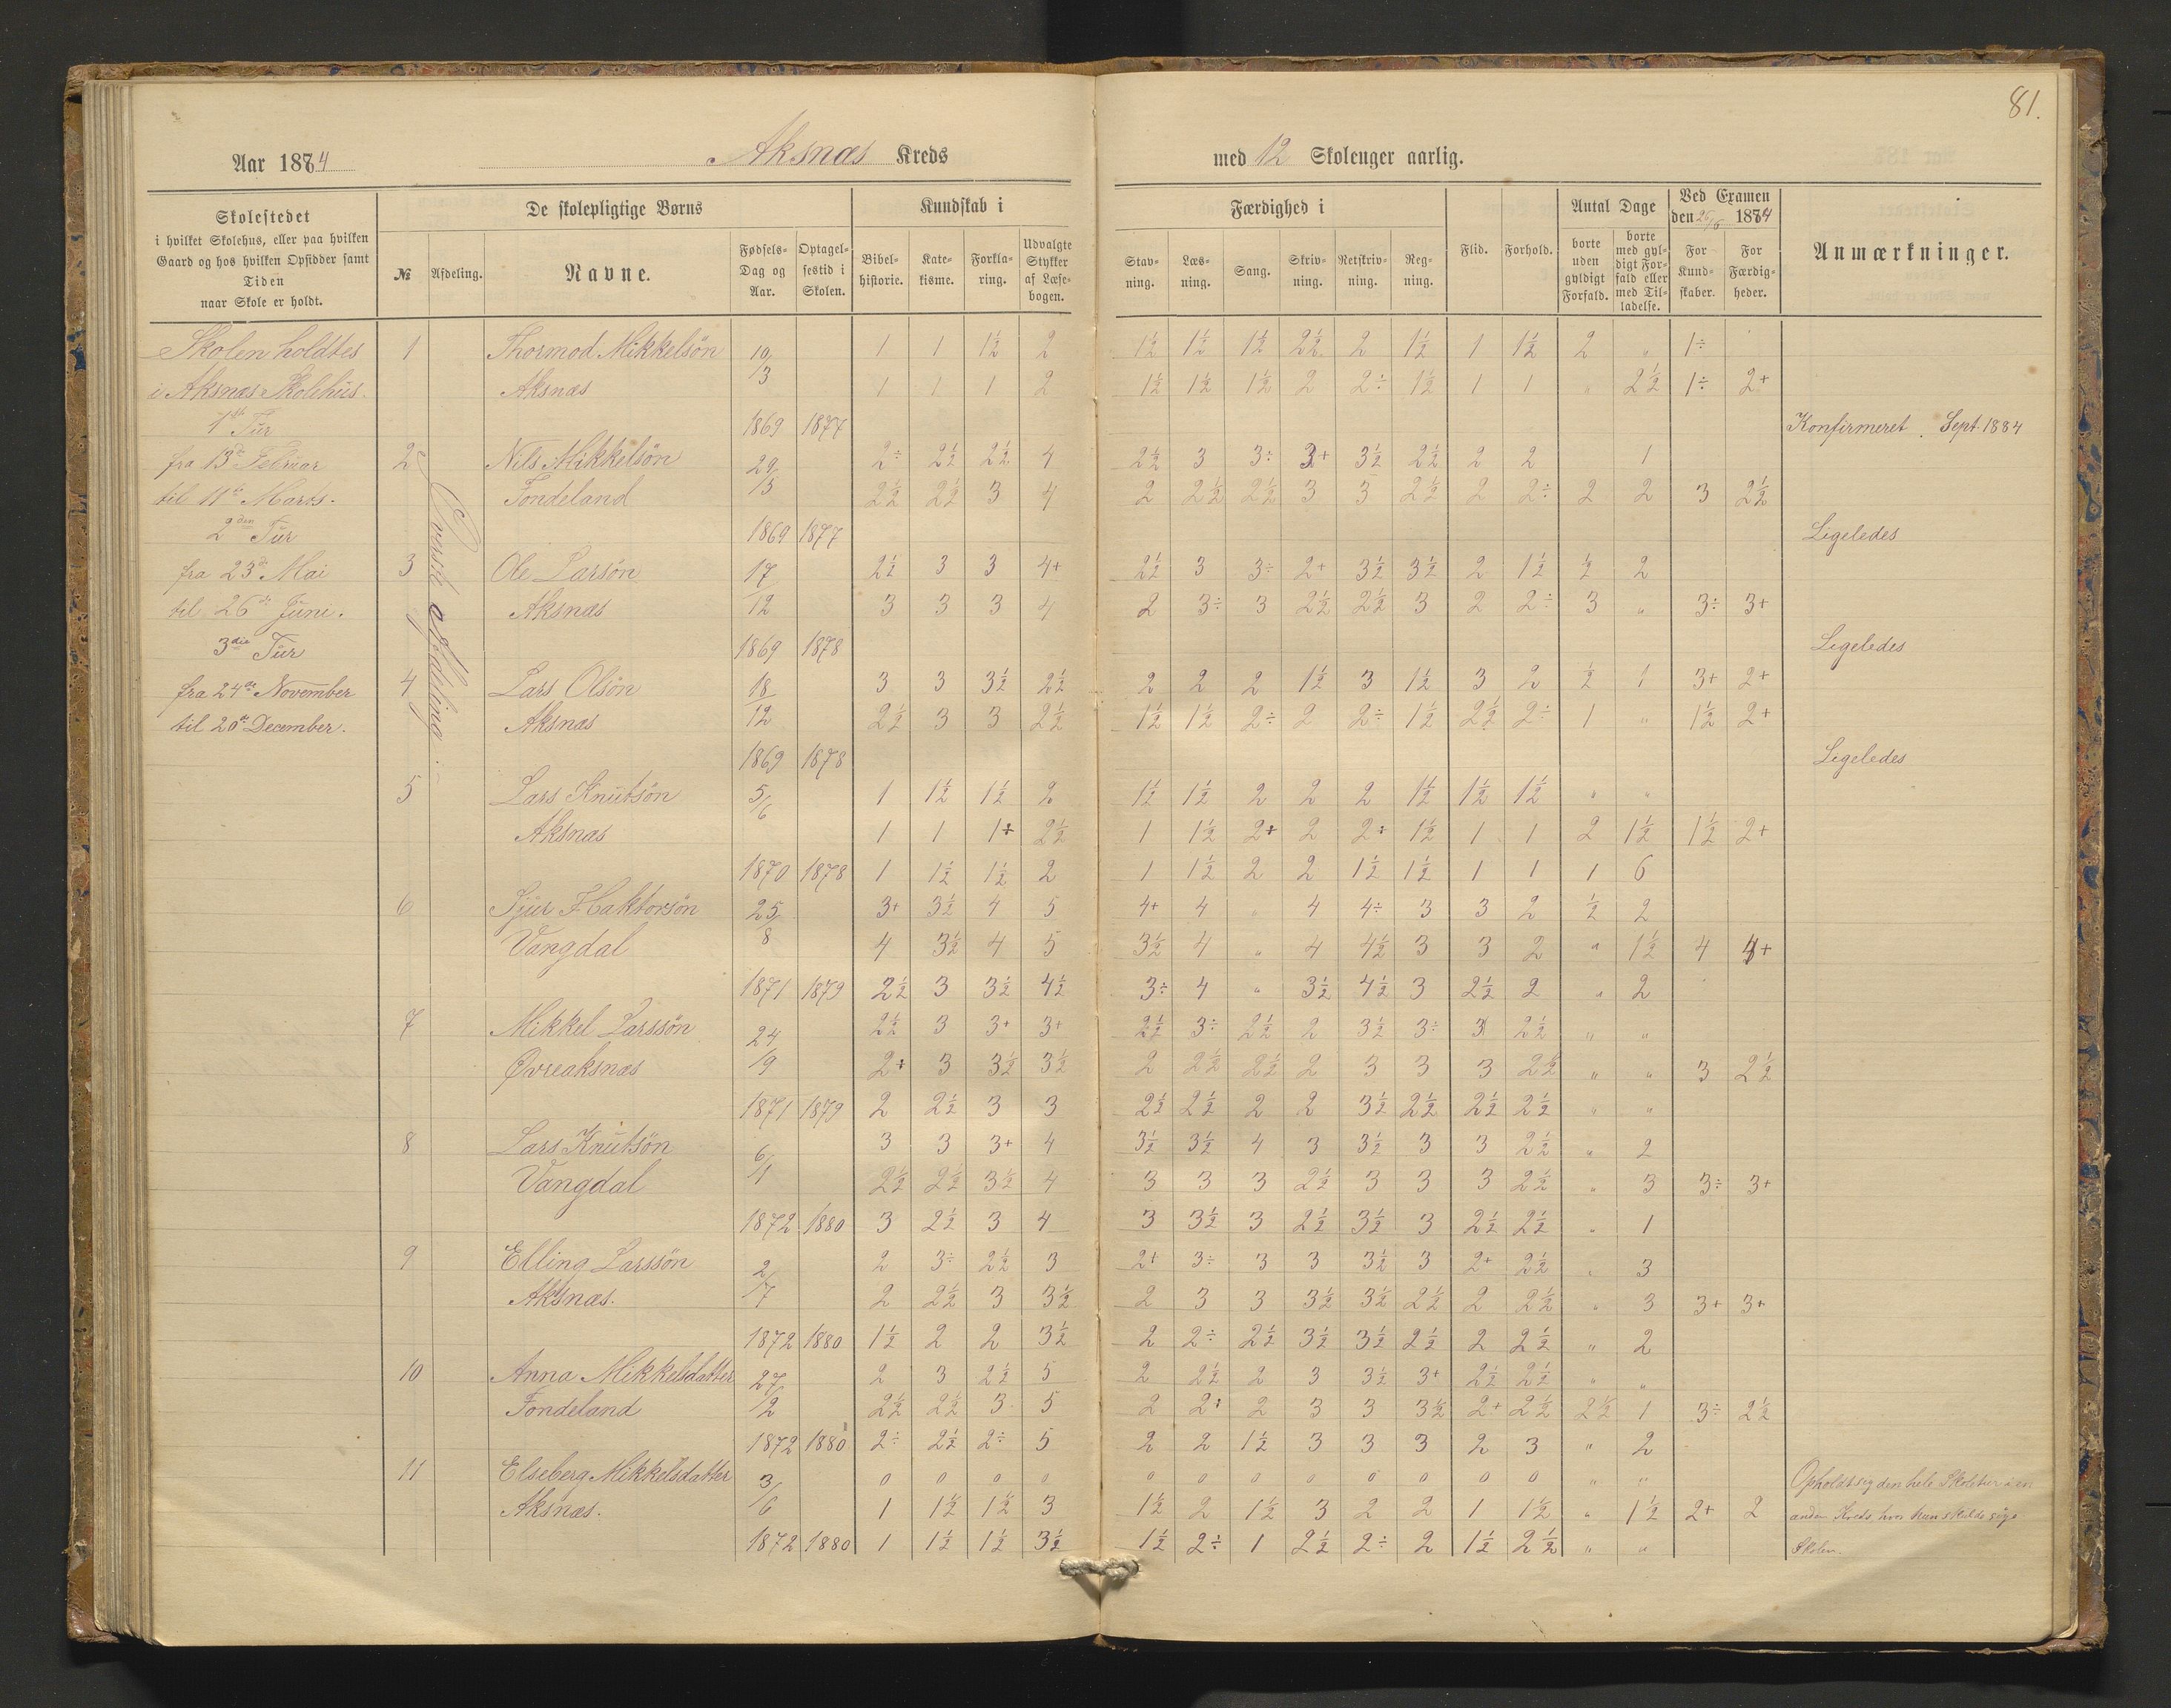 81.
Aar 1884 Aksnæs Kreds med 12 Skoleuger aarlig.
Skolestedet i hvilket Skolehus, eller paa hvilken Gaard og hos hvilken Opsidder samt Tiden naar Skole er holdt.
De skolepligtige Børns
№ Afdeling. Navne. Fødsels-Dag og Aar. Optagel-sestid i Skolen.
Kundskab i
Bibel-historie. Kate-kisme. Forkla-ring. Udvalgte Stykker af Læse-bogen.
Færdighed i
Stav-ning. Læs-ning. Sang. Skriv-ning. Retskriv-ning. Reg-ning.
Flid. Forhold.
Antal Dage
borte uden gyldigt Forfald. borte med gyl-digt For-fald eller med Til-ladelse.
Ved Examen den 26/6 1884
For Kund-skaber. For Færdig-heder.
Anmærkninger.
Skolen holdtes
i Aksnæs Skolehus.
1ste Tur
fra 13de Februar
til 11te Marts.
2den Tur
fra 23de Mai
til 26de Juni.
3die Tur
fra 24de November
til 20de December.
Øverste afdeling.
1 Thormod Mikkelsön 10/3 1 1 1½ 2 1½ 1½ 1½ 2½ 2 1½ 1 1½ 2 " 1÷
Aksnæs 1 1 1 2 1½ 1½ 1½ 2 2÷ 1½ 1 1 " 2½ 1÷ 2+
1869 1877 Konfirmeret. Sept. 1884
2 Nils Mikkelsön 29/5 2÷ 2½ 2½ 4 2½ 3 3÷ 3+ 3½ 2½ 2 2 1
Tondeland 2½ 2½ 3 4 2 2½ 2½ 3 3 2½ 2 2÷ 2 2 3 2½
1869 1877 Ligeledes
3 Ole Larsön 17/12 2½ 3 3 4+ 2½ 3 3÷ 2+ 3½ 3½ 2 1½ ½ 2
Aksnæs 3 3 3 4 2 3÷ 3 2½ 2½ 3 2 2÷ 3 " 3÷ 3+
1869 1878 Ligeledes
4 Lars Olsön 18/12 3 3 3½ 2½ 2 2 2 1½ 3 1½ 3 2 ½ 1 3+ 2+
Aksnæs 2½ 3 3 2½ 1½ 1½ 2÷ 2 2÷ 1½ 2½ 2÷ 1 " 1½ 2+
1869 1878 Ligeledes
5 Lars Knutsön 5/6 1 1½ 1½ 2 1½ 1½ 2 2 2 1½ 1½ 1½ " "
Aksnæs 1 1 1+ 2½ 1 1½ 2+ 2 2÷ 1½ 1 1 2 1½ 1½ 2+
1870 1878 1 1½ 1½ 2 1 1½ 2 2 1½ 1½ 1 1 1 6
6 Sjur Haktorsön 25/8 3+ 3½ 4 5 4+ 4 " 4 4÷ 3 3 2 ½ 2
Vangdal 4 3½ 4 5 3½ 4 " 4 4½ 3 3 2 " 1½ 4 4+
1871 1879 2½ 3 3½ 4½ 3÷ 4 " 3½ 4½ 3 2½ 2 " 2
7 Mikkel Larssön 24/9 2½ 3 3+ 3+ 2½ 3÷ 2½ 2 3½ 3÷ 3 2½ " "
Øvreaksnæs 2÷ 3 3½ 3½ 2 2½ 2½ 2 3 3 3 2½ " " 3 2½
1871 1879 2 2½ 3 3 2½ 2½ 2 2 3½ 2½ 2½ 2½ " "
8 Lars Knutsön 6/1 3 3 3+ 4 3½ 3½ 4 3 3½ 3 3 2½ " 2
Vangdal 2½ 2½ 3½ 4 3 3 3 2½ 3 3 3 2½ " 3 3÷ 3+
1872 1880 3 2½ 3 4 3 3½ 3 2½ 3½ 3 2½ 2½ " 1
9 Elling Larssön 2/7 2 3÷ 2½ 3 2+ 3÷ 3 3 3½ 3 2+ 2½ " 3
Aksnæs. 2 2½ 3 3½ 2 3 3 3½ 3½ 2½ 2 2½ " 3 3+ 3+
1872 1880 1½ 2 2 3½ 2 2÷ 2½ 3½ 3½ 2½ 2 2½ " 2
10 Anna Mikkelsdatter 27/2 2 3 2½ 5 2 2½ 2 3 3½ 3+ 2½ 2½ " "
Tondeland 2½ 2½ 3 5 2 2÷ 2 3 3 3½ 2+ 2½ 2½ 1 3÷ 2½
1872 1880 2÷ 2½ 2÷ 5 2 2 1½ 3 3 3 2 3 " 2
11 Elseberg Mikkelsdatter 3/6 0 0 0 0 0 0 0 0 0 0 0 0 " " Opholdt sig den hele Skoletur i en
Aksnæs. 1 1½ 1½ 3 1½ 2 1½ 3 2 2 1 1½ " 1½ 2+ 2 anden Kreds, hvor hun skulde söge
1872 1880 1 1½ 1½ 3½ 1½ 2÷ 1 2½ 2÷ 2 1½ 2½ " " Skolen.